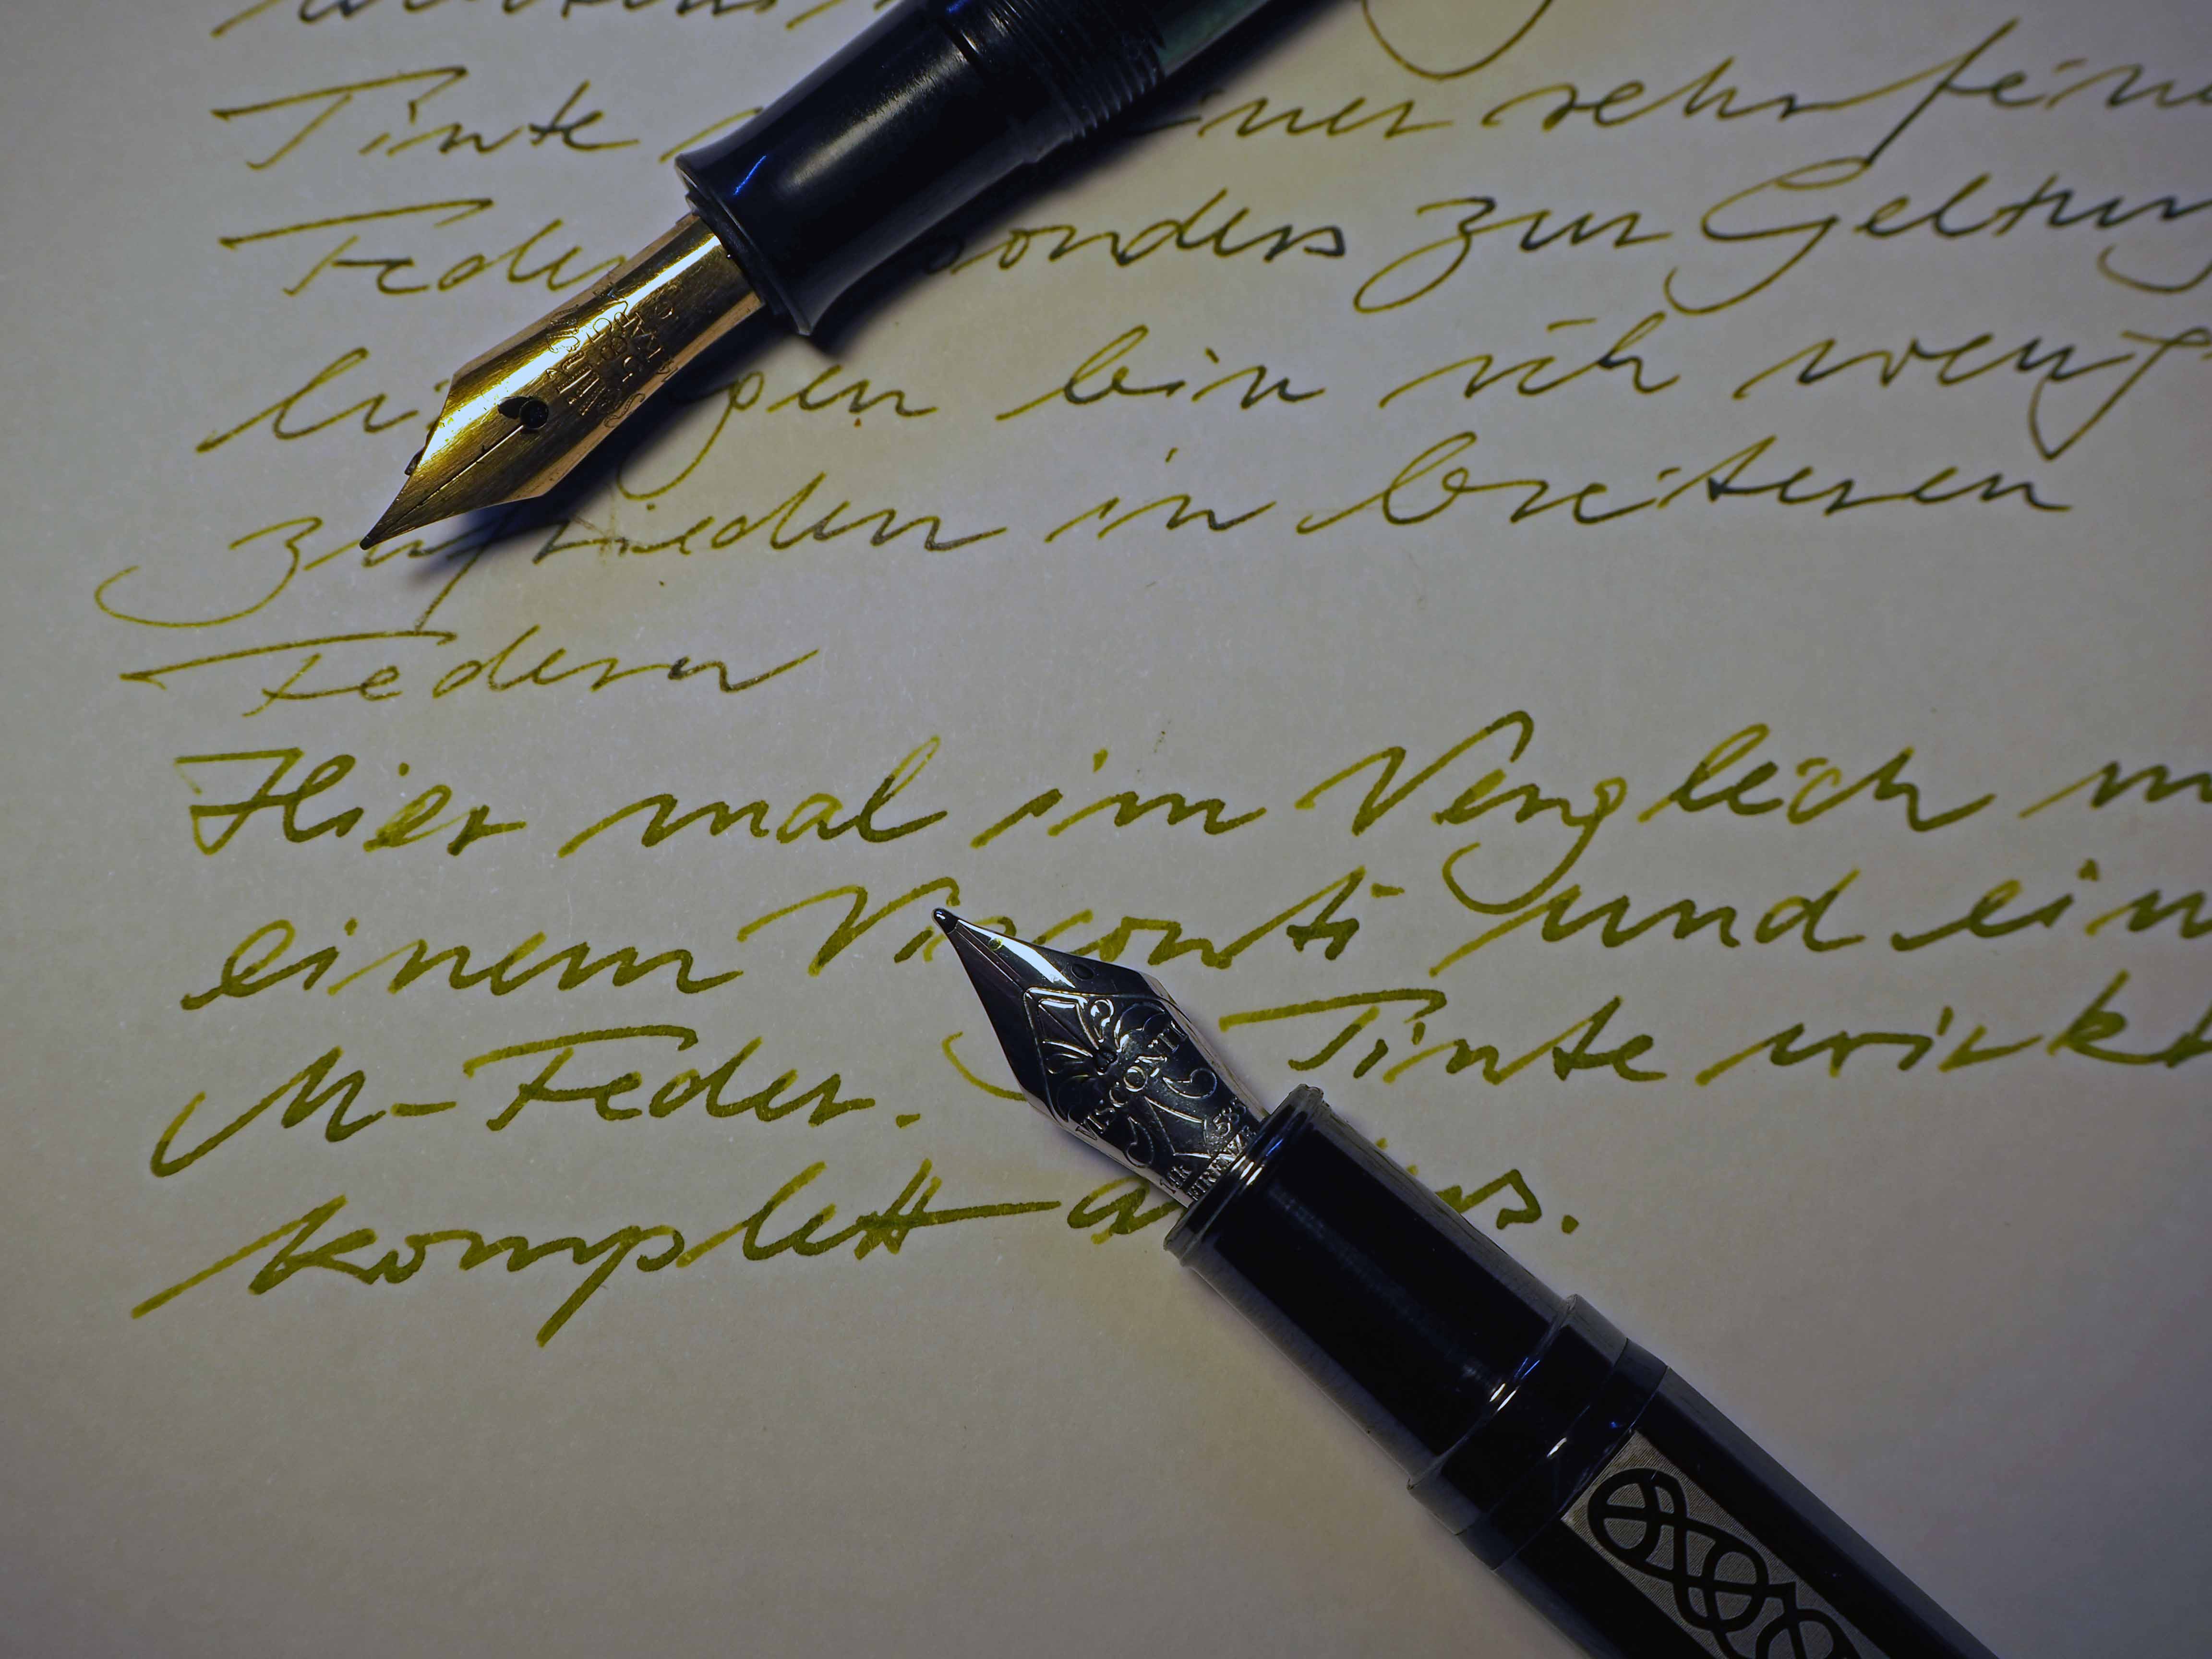 Tinte einer sehr feine
Feder besonders zur Geltung
bin ich wenig
zufrieden in breiteren
Federn
Hier mal im Vergleich mi
einem Visconti und ein
M-Feder. Tinte wirkt
komplett anders.
VISCONTI
14k 585
FIRENZE